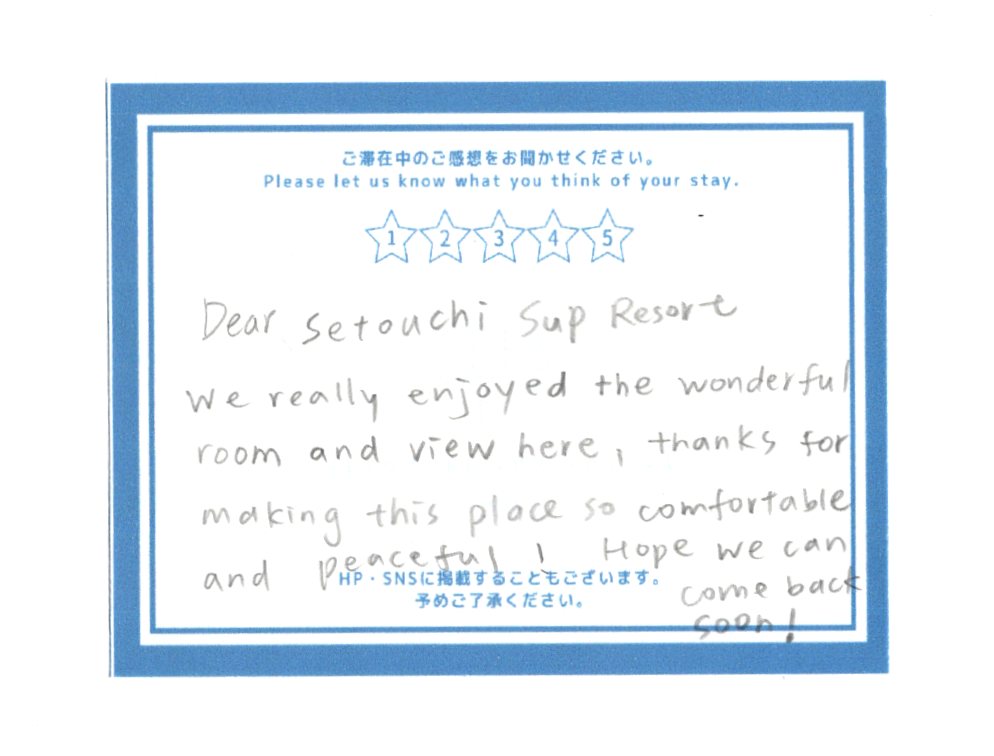 ご滞在中のご感想をお聞かせください。
Please let us know what you think of your stay.
1 2 3 4 5
Dear Setouchi Sup Resort
We really enjoyed the wonderful
room and view here, thanks for
making this place so comfortable
and peaceful! Hope we can
come back
soon!
HP・SNSに掲載することもございます。
予めご了承ください。